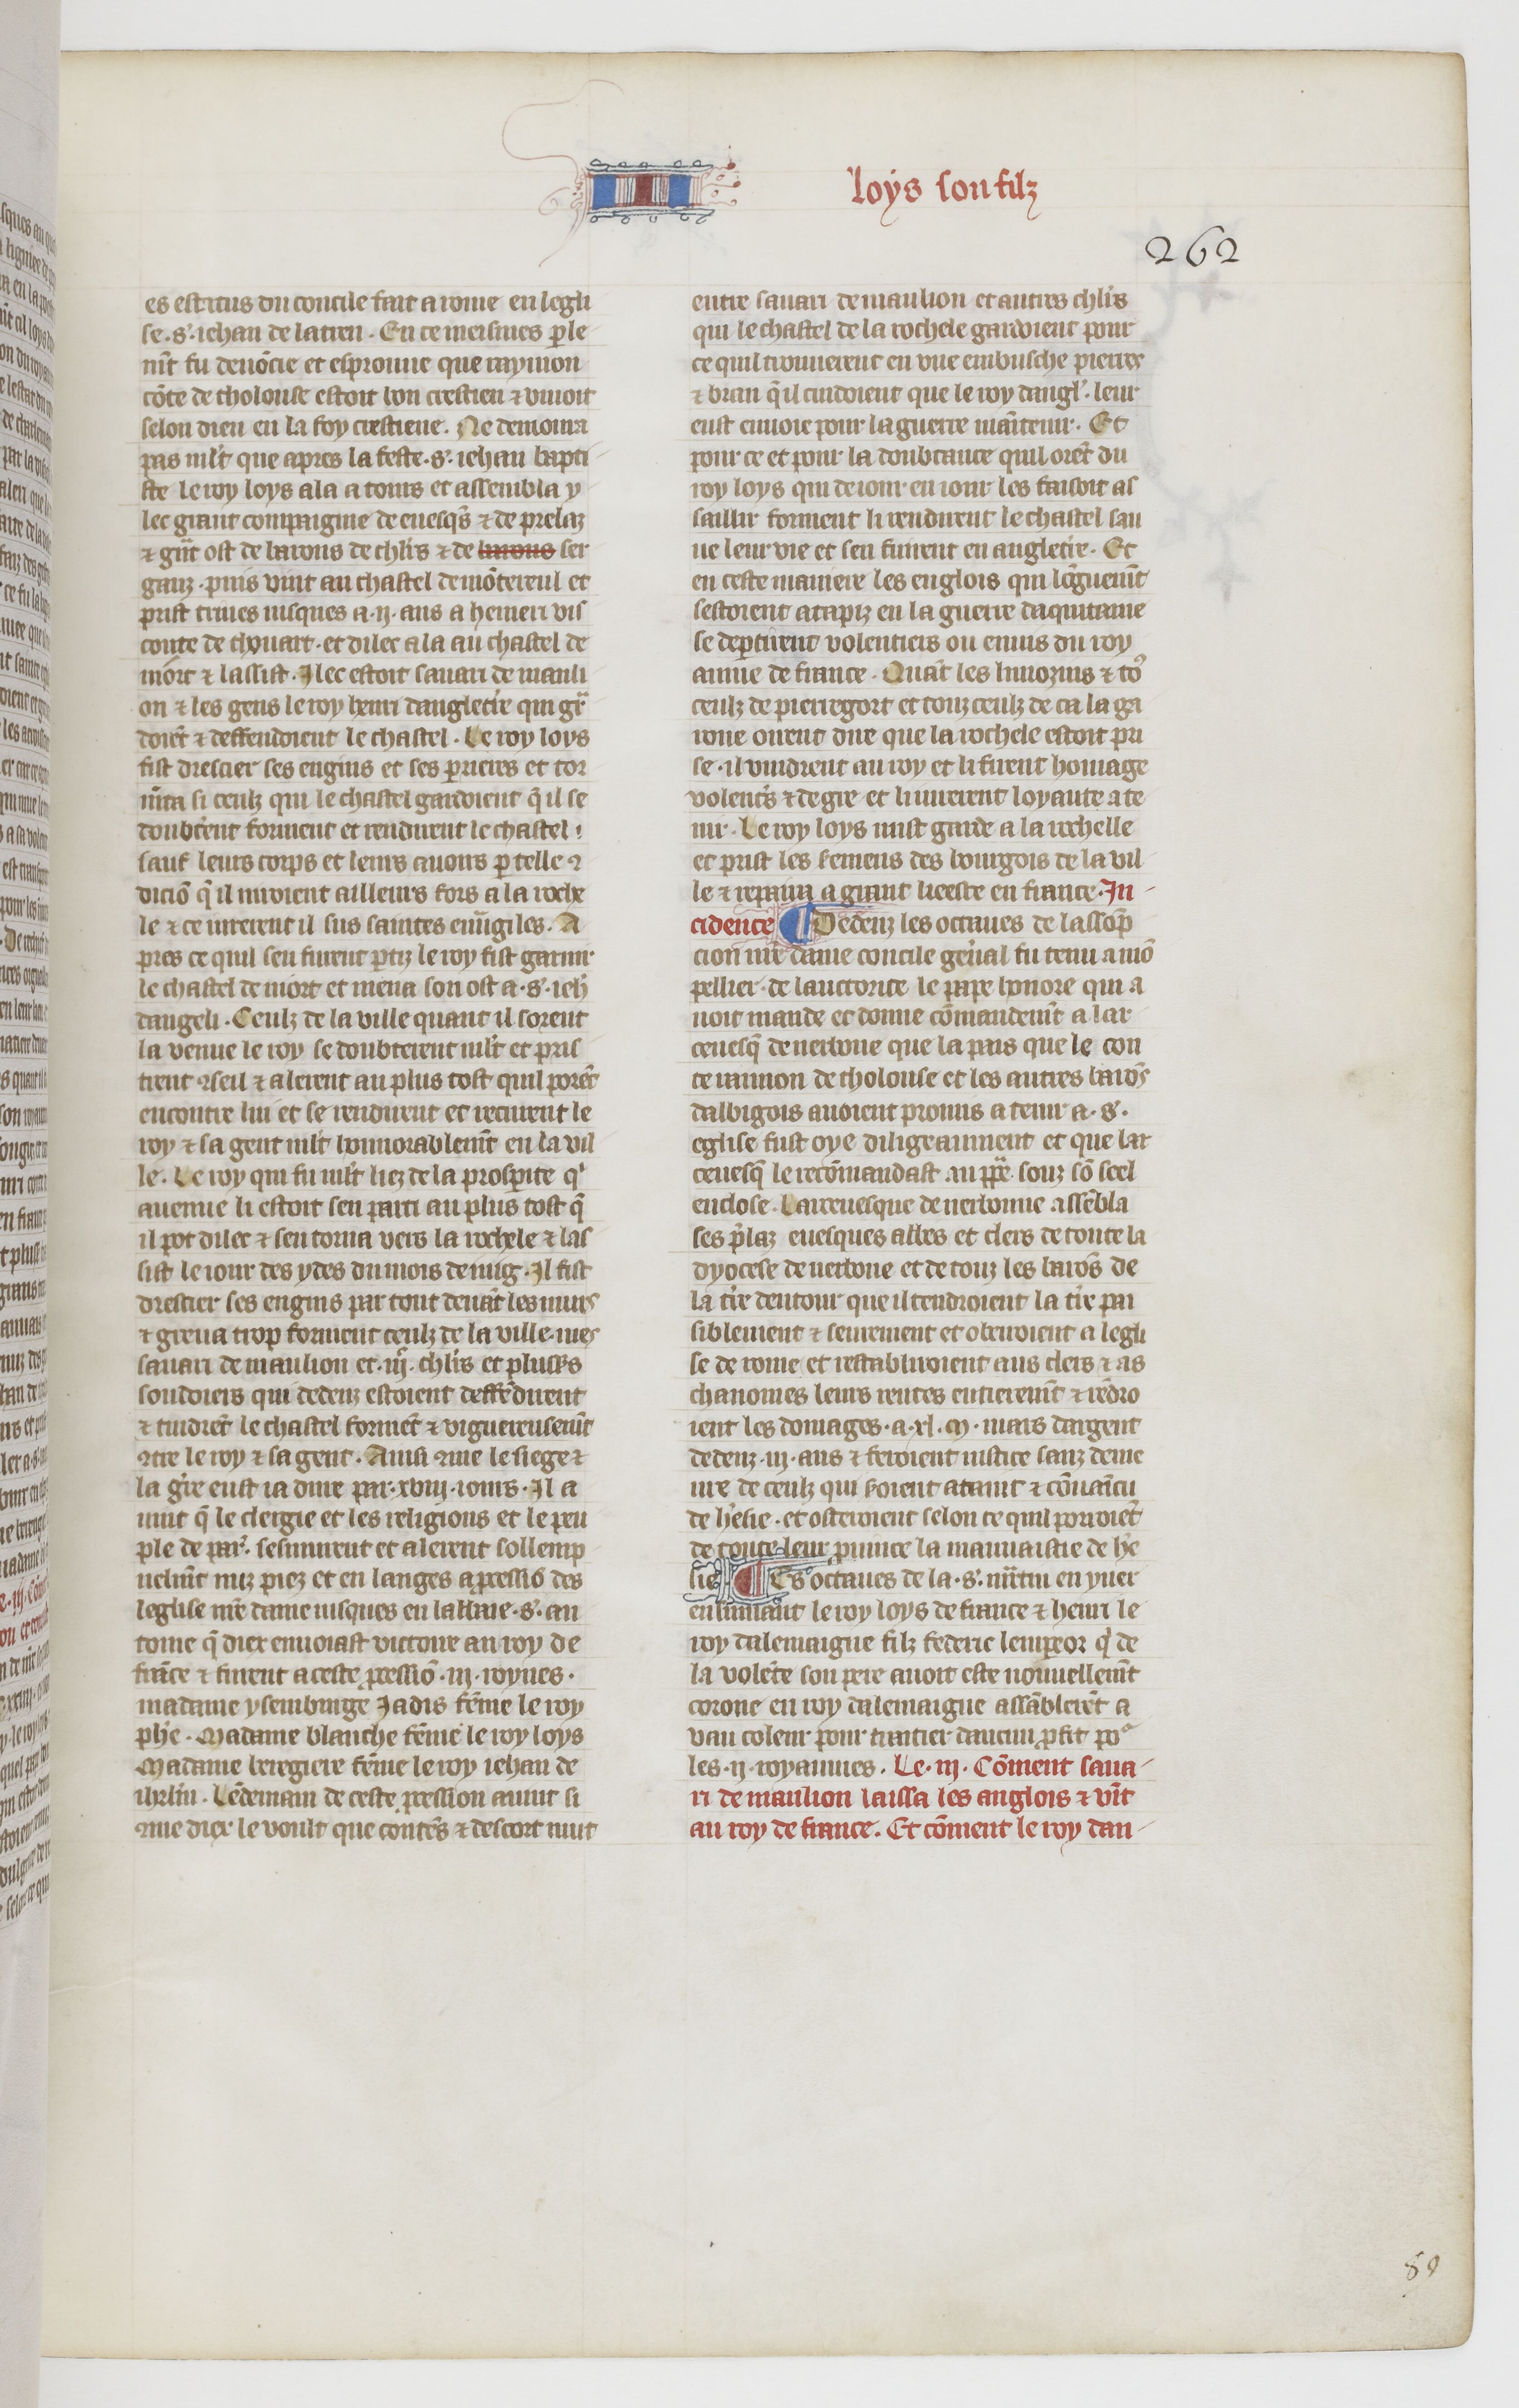 loys son filz
262
es estatus du concile fait a rome en legli
se .s. iehan de latren. En ce meismes ple
mt̄ fu denōcie et esprouue que raymon
cōte de tholouse estoit bon crestien ⁊ viuoit
selon dieu en la foy crestiene. Ne demoura
pas ml̄t que apres la feste .s. iehan bapti
ste le roy loys ala a tours et assembla y
lec grant compaignie de euesq̄s ⁊ de prelaz
⁊ gn̄t ost de barons de chl̄rs ⁊ de barons ser
ganz. puis vint au chastel de mōstereul et
prist triues iusques a .ij. ans a hemeri vis
conte de thouart. et dilec ala au chastel de
niort ⁊ lassist. Ilec estoit sauari de mauli
on ⁊ les gens le roy henri dangletīre qui gr̄
doiēt ⁊ deffendoient le chastel. Le roy loys
fist drescier ses engins et ses perieres et tor
mēta si ceulz qui le chastel gardoient q̄ il se
doubtēent forment et rendirent le chastel
sauf leurs corps et leurs auoirs p telle ꝯ
diciō q̄ il niroient ailleurs fors a la roche
le ⁊ ce iurerent il sus saintes euūgiles. A
pres ce quil sen furent ptiz le roy fist garnir
le chastel de niort et mena son ost a .s. ieh̄
dangeli. Ceulz de la ville quant il sorent
la venue le roy se doubterent ml̄t et pris
trent ꝯseil ⁊ alerent au plus tost quil porēt
encontre lui et se rendirent et recurent le
roy ⁊ sa gent ml̄t honnorablemēt en la vil
le. Le roy qui fu ml̄t liez de la prosperite q̄
auenue li estoit sen parti au plus tost q̄
il pot dilec ⁊ sen torna vers la rochele ⁊ las
sist le iour des ydes du mois de iuig. Il fist
drescier ses engins par tout deuāt les murs
⁊ greua trop forment ceulz de la ville. mes
sauari de maulion et .iij. chl̄rs et plusrs
soudoiers qui dedenz estoient deffēdirent
⁊ tindrēt le chastel formēt ⁊ viguereusemt̄
ꝯtre le roy ⁊ sa gent. Ainsi ꝯme le siege ⁊
la grīe eust ia dure par .xviij. iours. Il a
uint q̄ le clergie et les religions et le peu
ple de par̄. sesmurent et alerent sollemp
nelmt̄ nuz piez et en langes a pcessiō des
leglise nrē dame iusques en labbaie .s. an
toine q̄ diex enuoiast victoire au roy de
frāce ⁊ furent a ceste pcessiō .iij. roynes.
madame ysemburge Jadis fēme le roy
phē. Madame blanche fēme le roy loys
Madame berēgiere fēme le roy iehan de
ihrlm̄. Lēdemain de ceste pcession auint si
ꝯme diex le voult que contēs ⁊ descort mut
entre sauari de maulion et autres chl̄rs
qui le chastel de la rochele gardoient pour
ce quil trouuerent en vne embusche pierres
⁊ bran q̄ il cuidoient que le roy dangl̄. leur
eust enuoie pour la guerre maītenir. Et
pour ce et pour la doubtance quil orēt du
roy loys qui de iour en iour les faisoit as
saillir forment li rendirent le chastel sau
ue leur vie et sen furent en angletīre. Et
en ceste maniere les englois qui lōguemt̄
sestoient atapiz en la guerre daquitaine
se deptirent volentiers ou enuis du roy
aume de france. Quāt les limozins ⁊ to9
ceulz de pierregort et touz ceulz de ca la ga
rone oirent dire que la rochele estoit pri
se. il vindrent au roy et li firent homage
volent̄s ⁊ de gre et li iurerent loyaute a te
nir. Le roy loys mist garde a la rochelle
et prist les seremens des bourgois de la vil
le ⁊ repaira a grant lieesce en france. In
cidence Dedenz les octaues de lassōp
cion nrē dame concile genīal fu tenu a mō
pellier. de lauctorite le pape honore qui a
uoit mande et donne cōmandemt̄ a lar
ceuesq̄ de nerbone que la pais que le con
te raimon de tholouse et les autres barōs
dalbigois auoient promis a tenir a .s.
eglise fust oye diligeaument et que lar
ceuesq̄ le recōmandast au ppē. souz sō scel
enclose. Larceuesque de nerbonne assēbla
ses p̄laz euesques abbes et clers de toute la
dyocese de nerbone et de touz les barōs de
la tīre dentour que il tendroient la tīre pai
siblement ⁊ seurement et obeiroient a legli
se de rome et restabliroient aus clers ⁊ as
chanoines leurs rentes entieremt̄ ⁊ rēdro
ient les domages .a .xl. m. mars dargent
dedenz .iij. ans ⁊ feroient iustice sanz deme
ure de ceulz qui soient ataint ⁊ cōuaīcu
de hēsie. et osteroient selon ce quil porroiēt
de toute leur puince la mauuaistie de he
sie Es octaues de la .s. mr̄tin en yuer
ensuiuant le roy loys de france ⁊ henri le
roy dalemaigne filz federic lempeor q̄ de
la volēte son pere auoit este nouuellemt̄
corone en roy dalemaigne assāblerēt a
vau coleur pour traitier daucun pfit po2
les .ij. royaumes. Le .iij. Cōment saua
ri de maulion laissa les anglois ⁊ vīt
au roy de france. Et cōment le roy dan